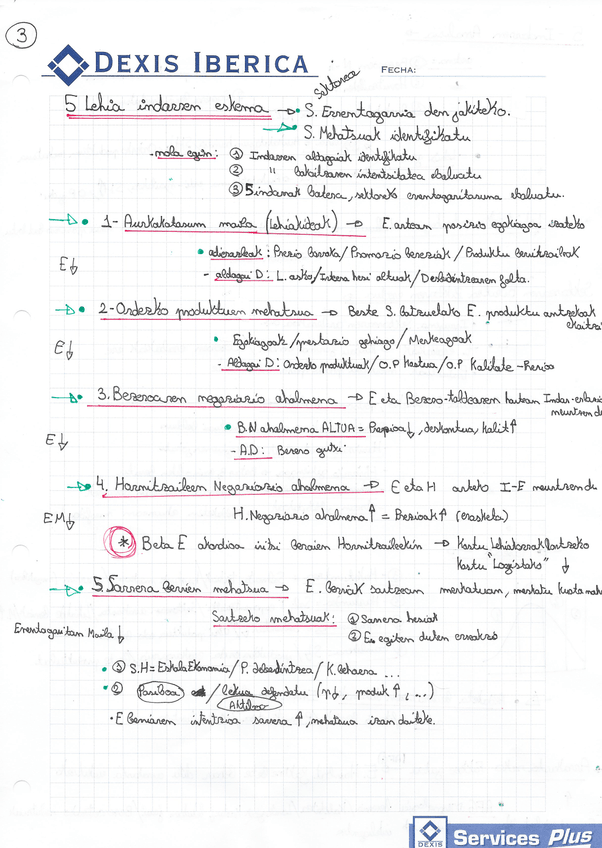 3
DEXIS IBERICA
FECHA:
sektorea
5 Lehia indarren eskema → S. Errentagarria den jakiteko.
→ S. Mehatsuak identifikatu
- nola egin: ① Indarren aldagaiak identifikatu
② " bakoitzaren intentsitatea ebaluatu
③ 5 indarrak batera, sektoreko errentagarritasuna ebaluatu.
→ • 1- Aurkakotasun maila (Lehiakideak) → E. artean posizio egokiagoa izateko
E↓
• adierazleak: Prezio baxuak/Promozio bereziak/Produktu berritzaileak
- aldagai D: L. asko/Irteera hesi altuak/Desberdintzearen falta.
→ • 2-Ordezko produktuen mehatsua → Beste S. batzuetako E. produktu antzekoak
E↓
• Egokiagoak/prestazio gehiago/Merkeagoak
- Aldagai D: Ordezko produktuak/O.P Kostua/O.P Kalitate-Prezioa
→ • 3. Bezeroaren negoziazio ahalmena → E eta Bezero-taldearen
E↓
• B.N ahalmena ALTUA = Prezioa↓, deskontua, kalit↑
- A.D: Bezero gutxi
→ • 4. Hornitzaileen Negoziazio ahalmena → E eta H arteko I-E
EM↓
H. Negoziazio ahalmena↑ = Prezioak↑ (eraskela)
* Beste E akordioa iritsi beraien Hornitzaileekin →
Kostu "Logistako" ↓
→ • 5. Sarrera berrien mehatsua → E. berriak sartzean merkatuan, merkatu kuota
Sartzeko mehatsuak: ① Sarrera hesiak
② E. egiten duten erreakzio
Errentagarritasun Maila↓
• ① S.H = Eskala Ekonomia/P. desberdintzea/K. beharra ...
• ② Pasiboa / lekua defendatu (p↓, produk↑, ...)
Aktiboa
• E berriaren intentzioa sarrera↑, mehatsua izan daiteke.
DEXIS
Services Plus